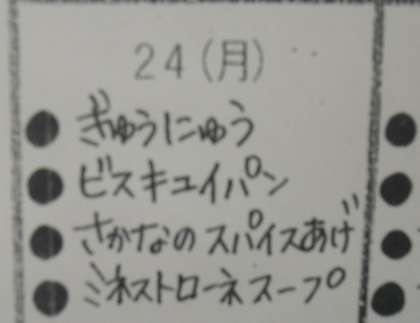 24(月)
● ぎゅうにゅう
● ビスキュイパン
● さかなのスパイスあげ
● ミネストローネスープ